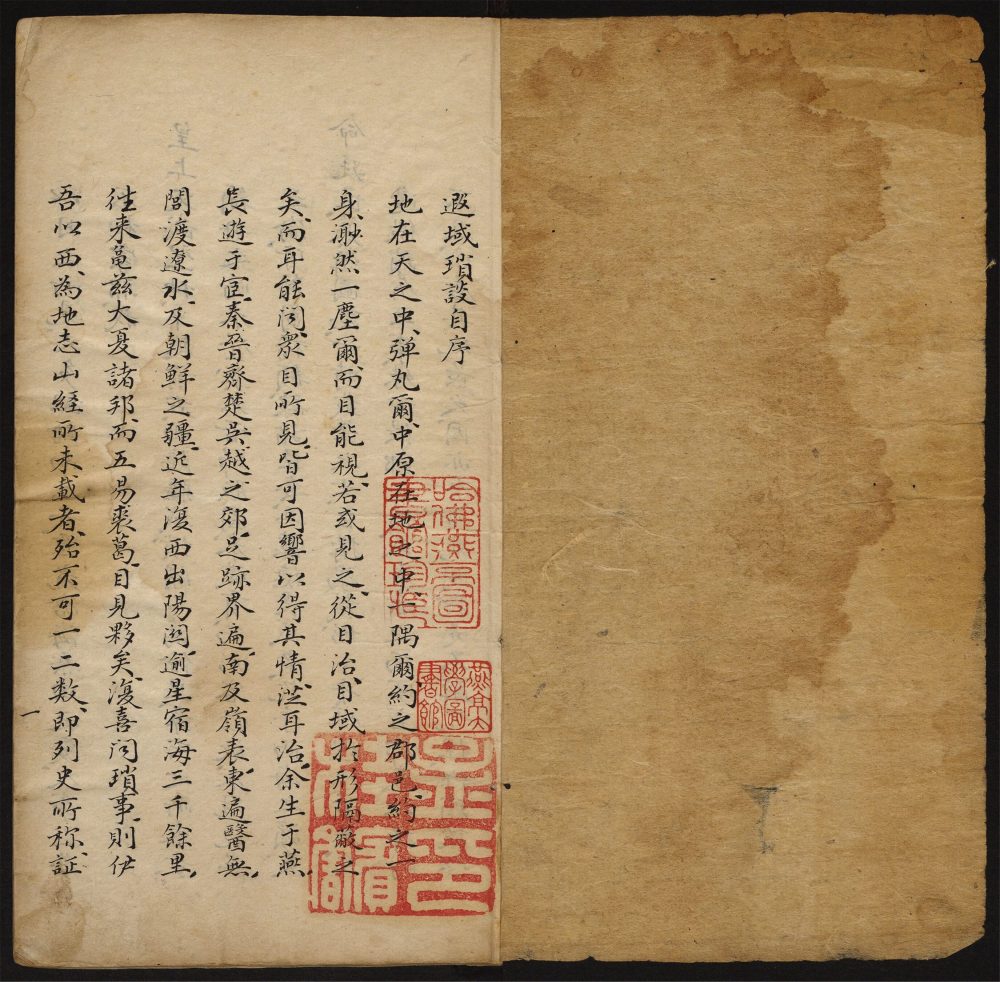 遐域瑣談自序
地在天之中彈丸爾中原在地之中一隅爾約之郡邑約之一
身渺然一塵爾而目能視若或見之從目治目域於形隔蔽之
矣而耳能闻衆目所見皆可因響以得其情從耳治余生于燕
長遊于宦秦晉齊楚吳越之郊足跡界遍南及嶺表東遍醫無
閭渡遼水及朝鮮之疆近年復西出陽関逾星宿海三千餘里
徃来龜兹大夏諸邦而五易裘葛目見夥矣復喜问瑣事則伊
吾以西為地志山経所未載者殆不可一二数即列史所称証
一
哈佛燕
燕京大學圖書館